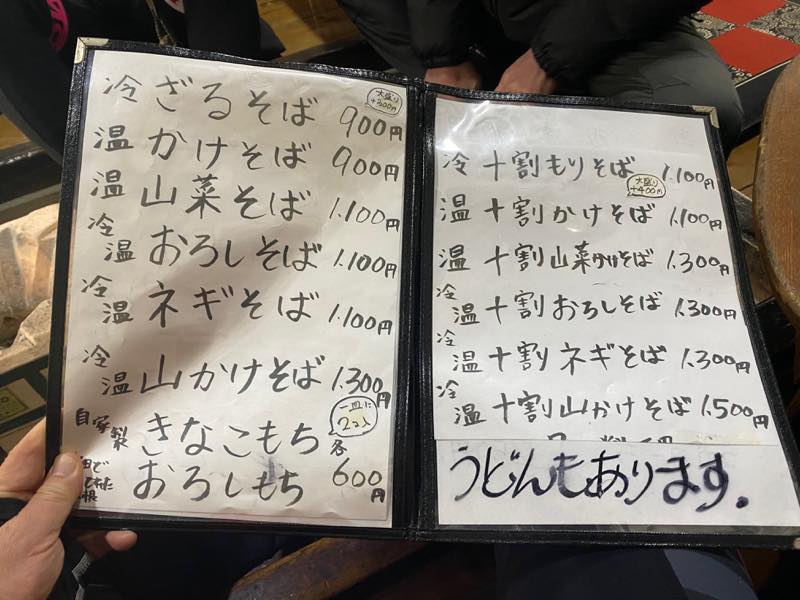 冷 ざるそば 900円
大盛り
+300円
温 かけそば 900円
温 山菜そば 1.100円
冷
温 おろしそば 1.100円
冷
温 ネギそば 1.100円
冷
温 山かけそば 1.300円
一皿に
2コ入
自家製 きなこもち 各
おろしもち 600円
冷 十割もりそば 1.100円
大盛り
+400円
温 十割かけそば 1.100円
温 十割山菜かけそば 1.300円
冷
温 十割おろしそば 1.300円
冷
温 十割ネギそば 1.300円
冷
温 十割山かけそば 1.500円
うどんもあります.